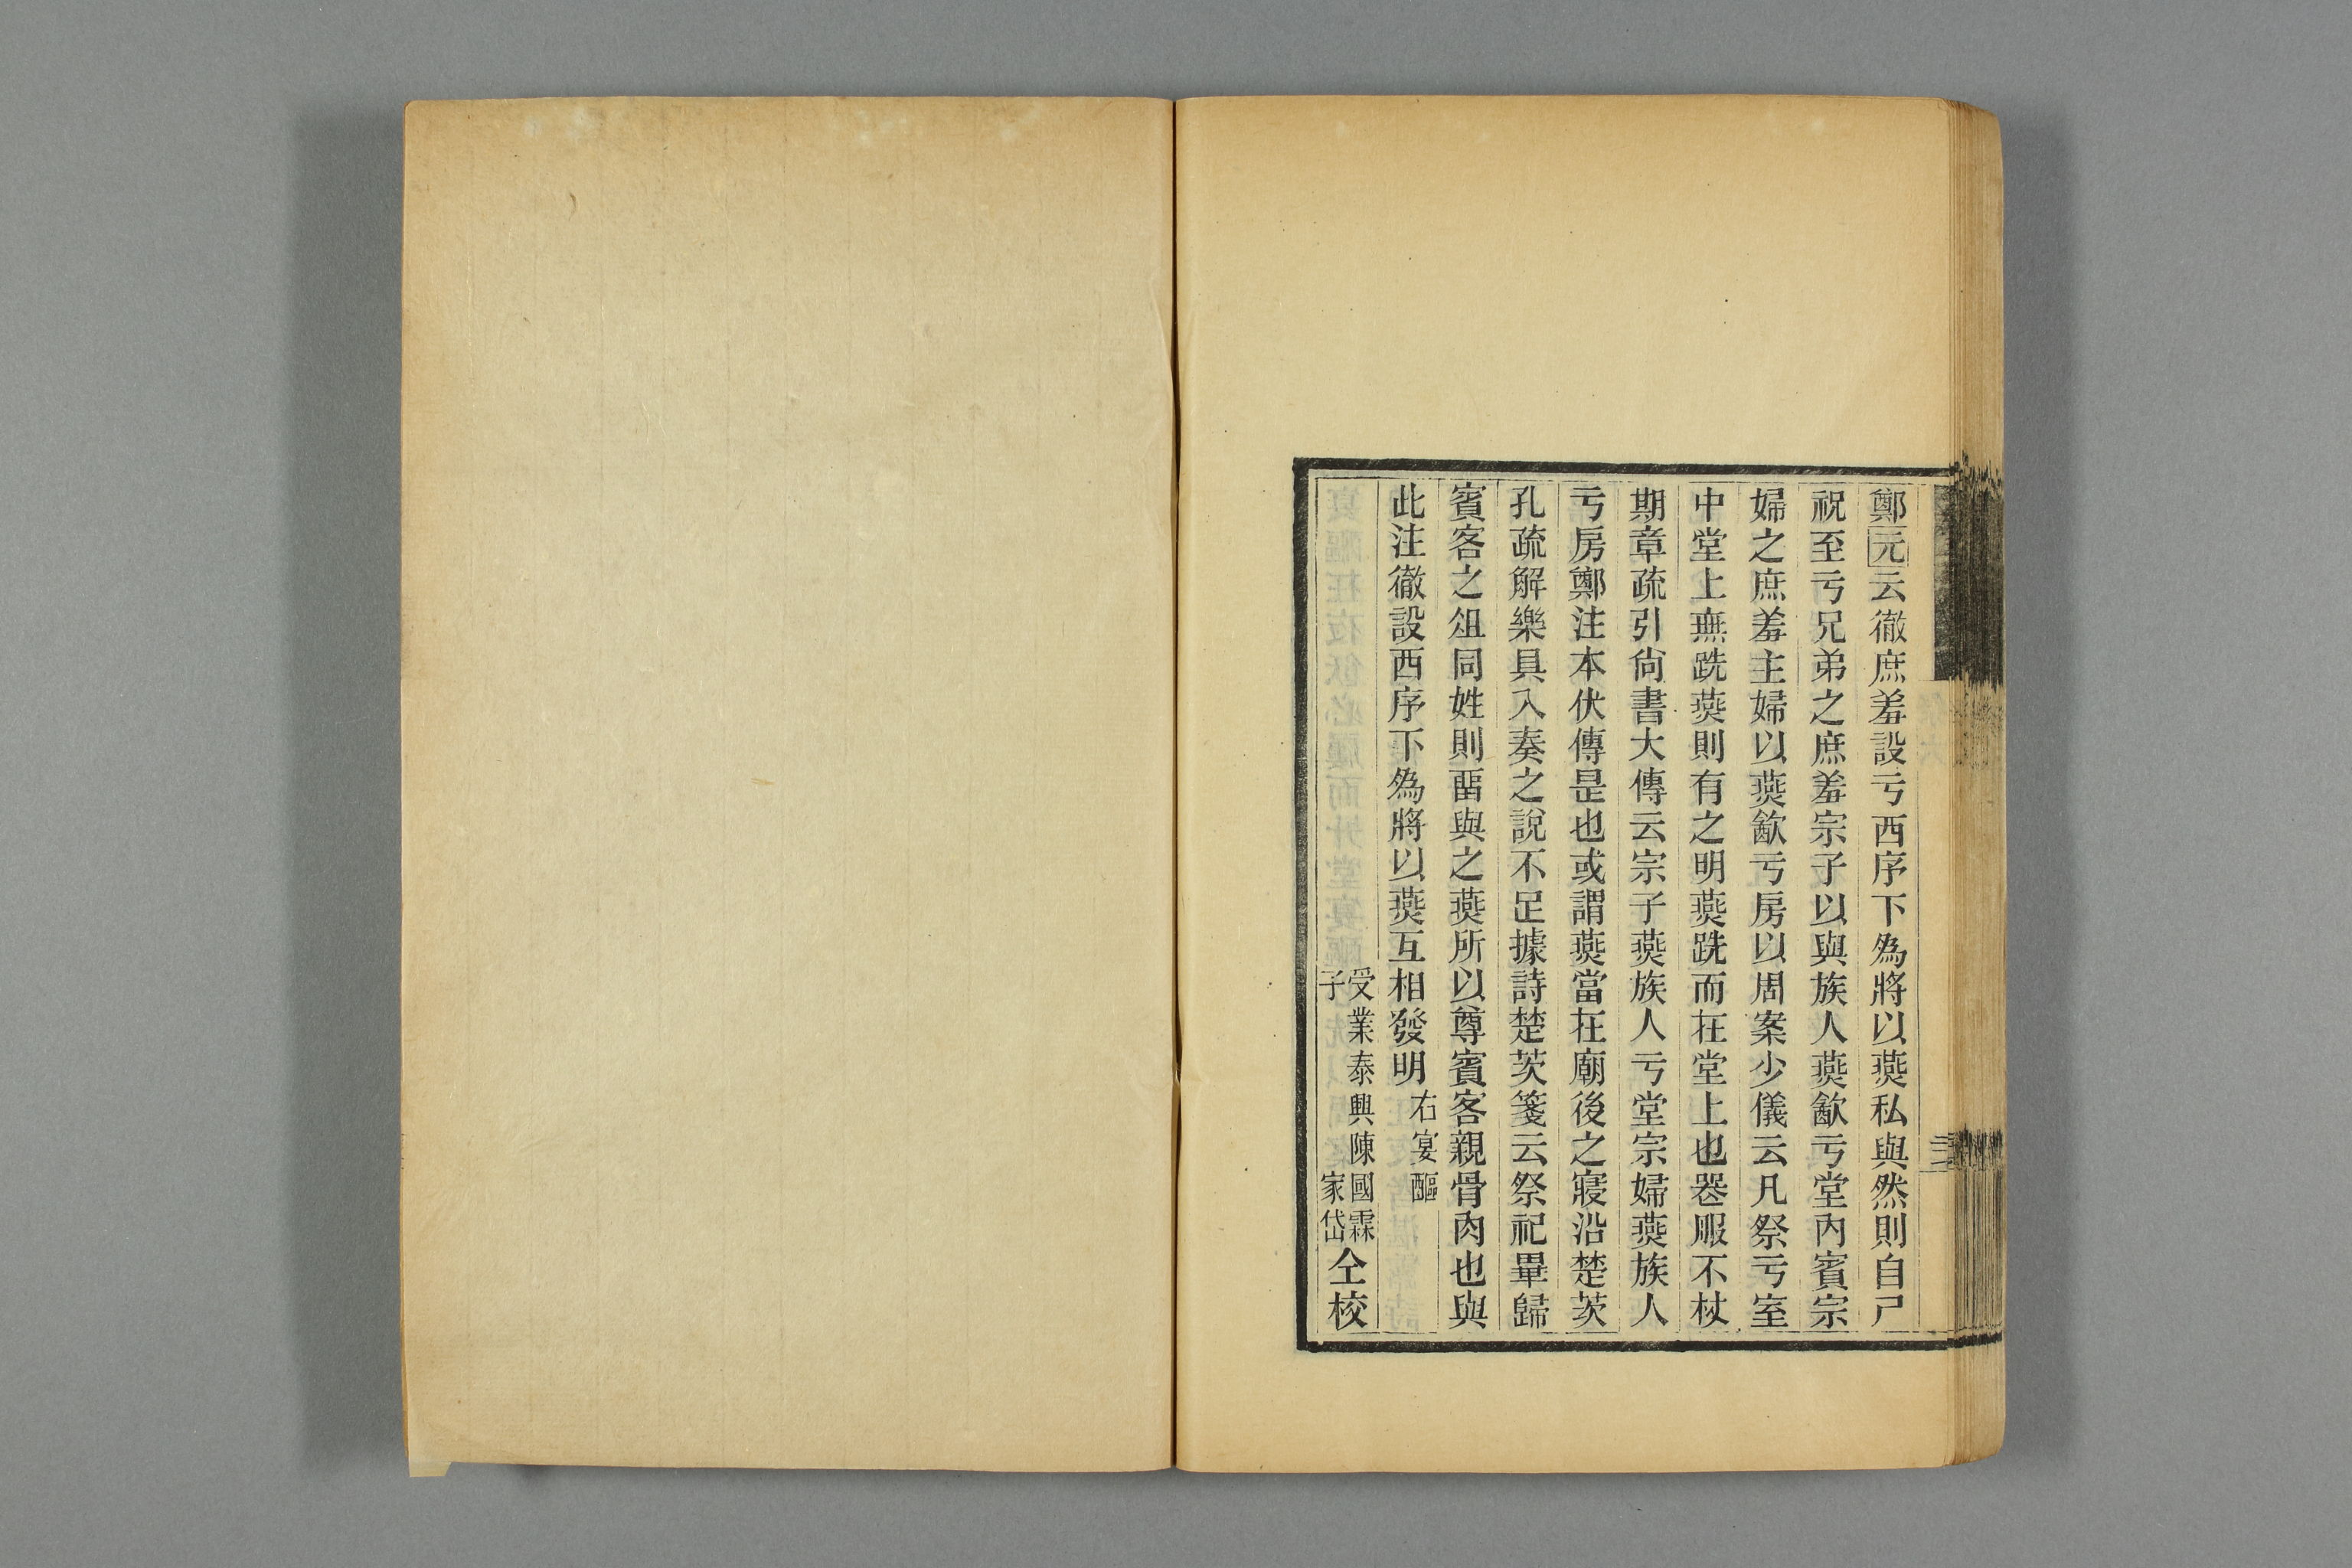 鄭元云徹庶羞設亏西序下爲將以燕私與然則自尸
祝至亏兄弟之庶羞宗子以與族人燕飮亏堂內賓宗
婦之庶羞主婦以燕飮亏房以周案少儀云凡祭亏室
中堂上無跣燕則有之明燕跣而在堂上也喪服不杖
期章疏引尙書大傳云宗子燕族人亏堂宗婦燕族人
亏房鄭注本伏傳是也或謂燕當在廟後之寢沿楚茨
孔疏解樂具入奏之說不足據詩楚茨箋云祭祀畢歸
賓客之俎同姓則畱與之燕所以尊賓客親骨肉也與
此注徹設西序下爲將以燕互相發明 右宴醧
受業泰興陳國霖
子 家岱
仝校